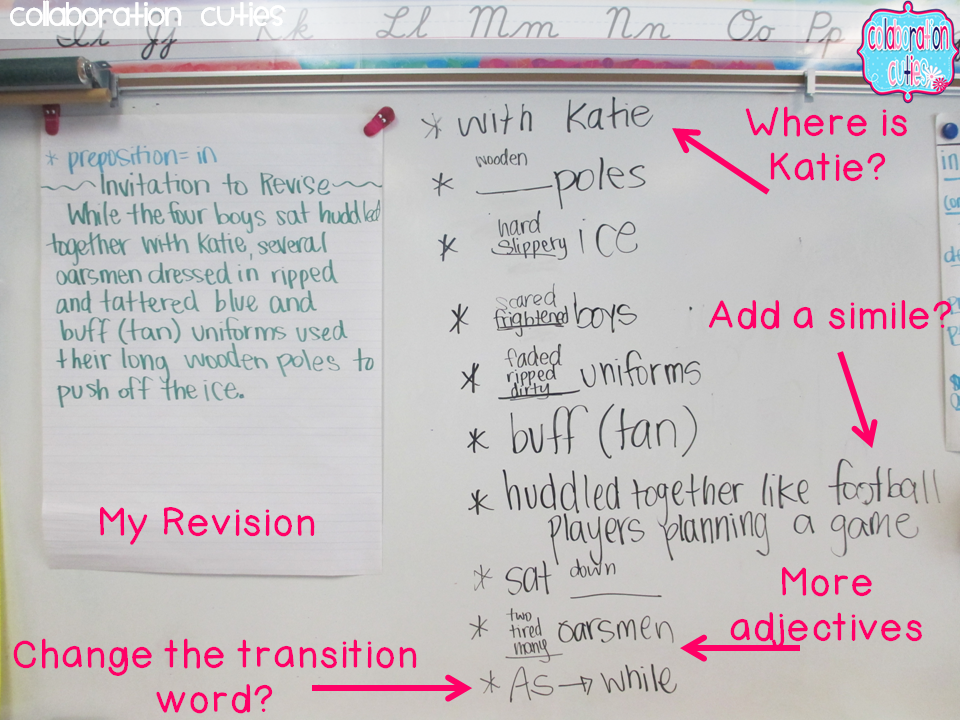 collaboration cuties
Ii Jj Kk Ll Mm Nn Oo Pp
collaboration
cuties
* preposition= in
Invitation to Revise
While the four boys sat huddled
together with Katie, several
oarsmen dressed in ripped
and tattered blue and
buff (tan) uniforms used
their long wooden poles to
push off the ice.
My Revision
* with Katie
Where is
Katie?
wooden
* ____ poles
hard
* slippery ice
scared
* frightened boys
Add a simile?
faded
ripped
* dirty uniforms
* buff (tan)
* huddled together like football
players planning a game
* sat down
More
adjectives
two
tired
* many oarsmen
Change the transition
word?
* As → while
in